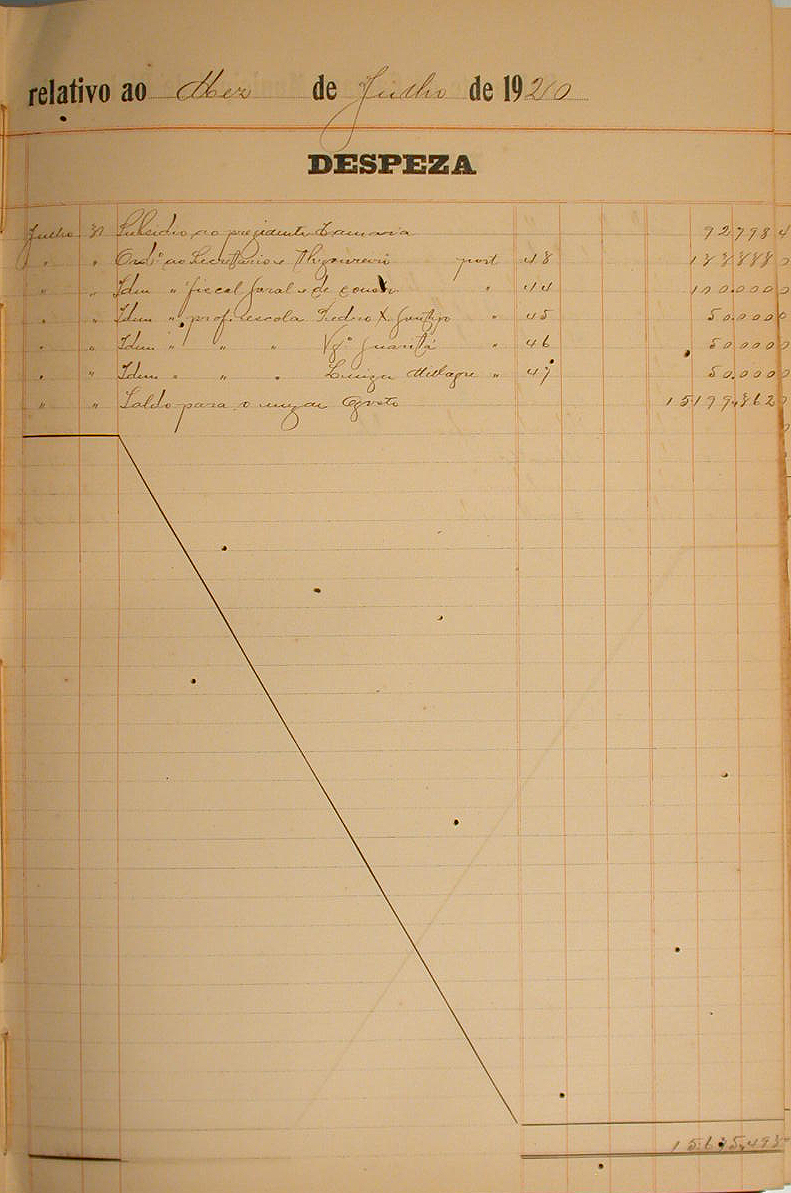 relativo ao Mez de Julho de 1920
DESPEZA
Julho 31 Subsidio ao prezidente Camara 92,798
" " Ord.º ao Secretario e Thezoureiro port 48 188888
" " Idem " fiscal geral e de port " 44 100.000
" " Idem " prof. escola Pedro X " 45 50.000
" " Idem " " " " 46 50.000
" " Idem " " " Luiza Milagre " 47 50.000
" " Saldo para o mez de Agosto 15199,862
15.635,498